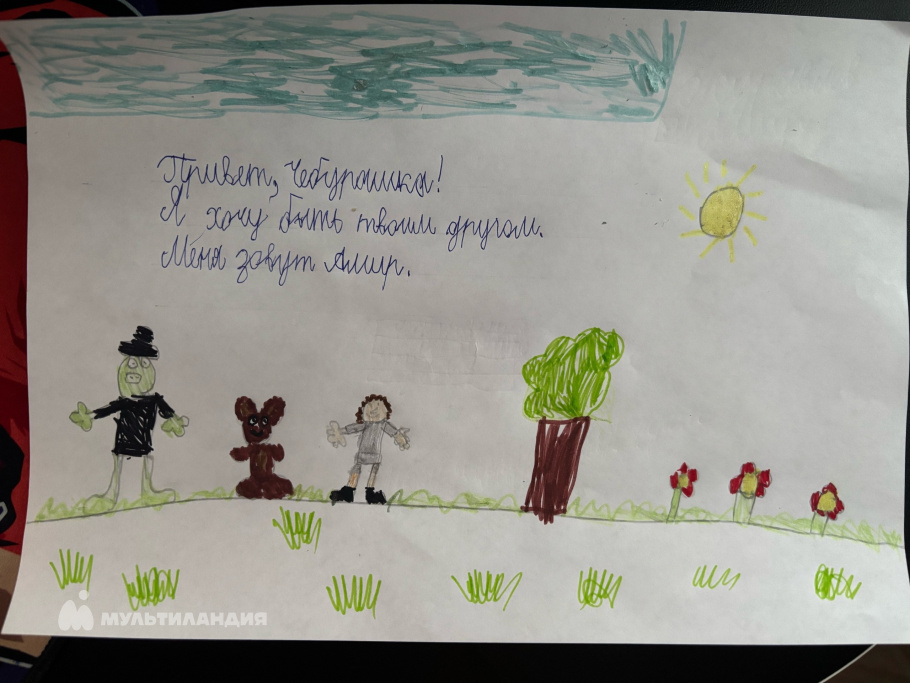 Привет, Чебурашка!
Я хочу быть твоим другом.
Меня зовут Амир.
МУЛЬТИЛАНДИЯ